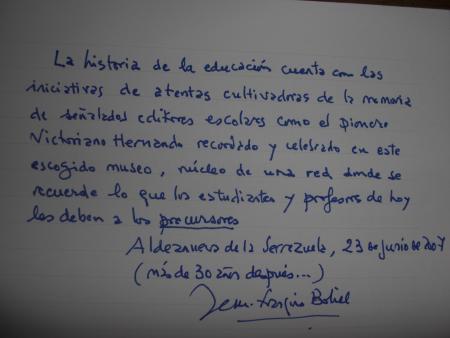 La historia de la educación cuenta con las
iniciativas de atentas cultivadoras de la memoria
de señalados editores escolares como el pionero
Victoriano Hernando recordado y celebrado en este
escogido museo, núcleo de una red donde se
recuerde lo que los estudiantes y profesores de hoy
les deben a los precursores
Aldeanueva de la Serrezuela, 23 de junio de 2007
(más de 30 años después...)